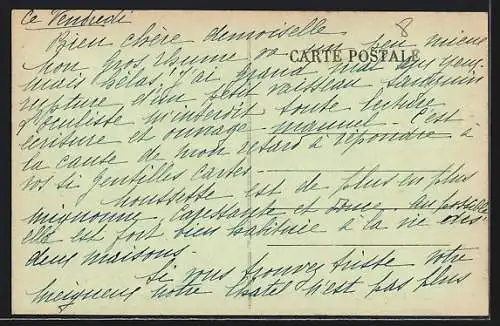 Ce Vendredi
8
Bien chère demoiselle
CARTE POSTALE
mon gros rhume va un peu mieux
mais hélas ! j'ai grand mal aux yeux
rupture d'un petit vaisseau sanguin
l'oculiste m'interdit toute lecture
écriture et ouvrage manuel - C'est
la cause de mon retard à répondre à
vos si gentilles cartes -
Moussette est de plus en plus
mignonne, caressante et douce
elle est fort bien habituée à la vie des
deux maisons.
Si vous trouvez triste votre
Meigneux notre Chatel n'est pas plus